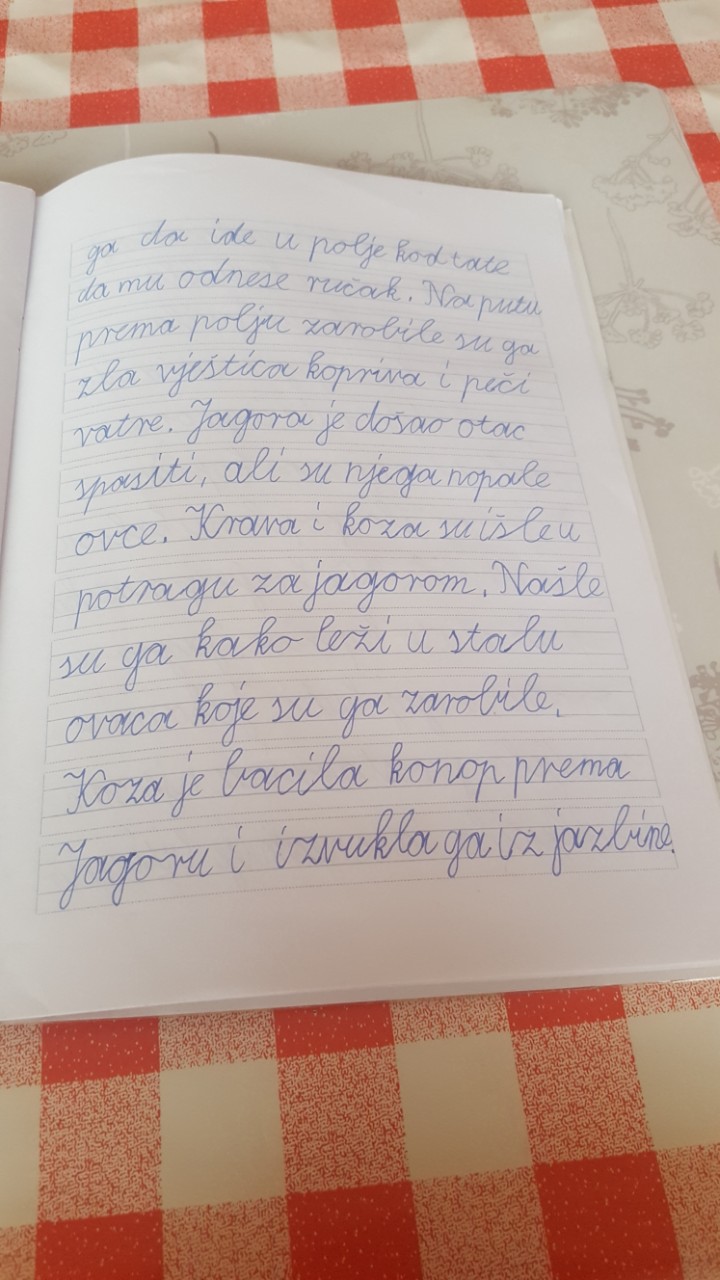 ga da ide u polje kod tate
da mu odnese ručak. Na putu
prema polju zarobile su ga
zla vještica kopriva i peči
vatre. Jagora je došao otac
spasiti, ali su njega nopale
ovce. Krava i koza su išle u
potragu za jagorom. Našle
su ga kako leži u stalu
ovaca koje su ga zarobile.
Koza je bacila konop prema
Jagoru i izvukla ga iz jazbine.